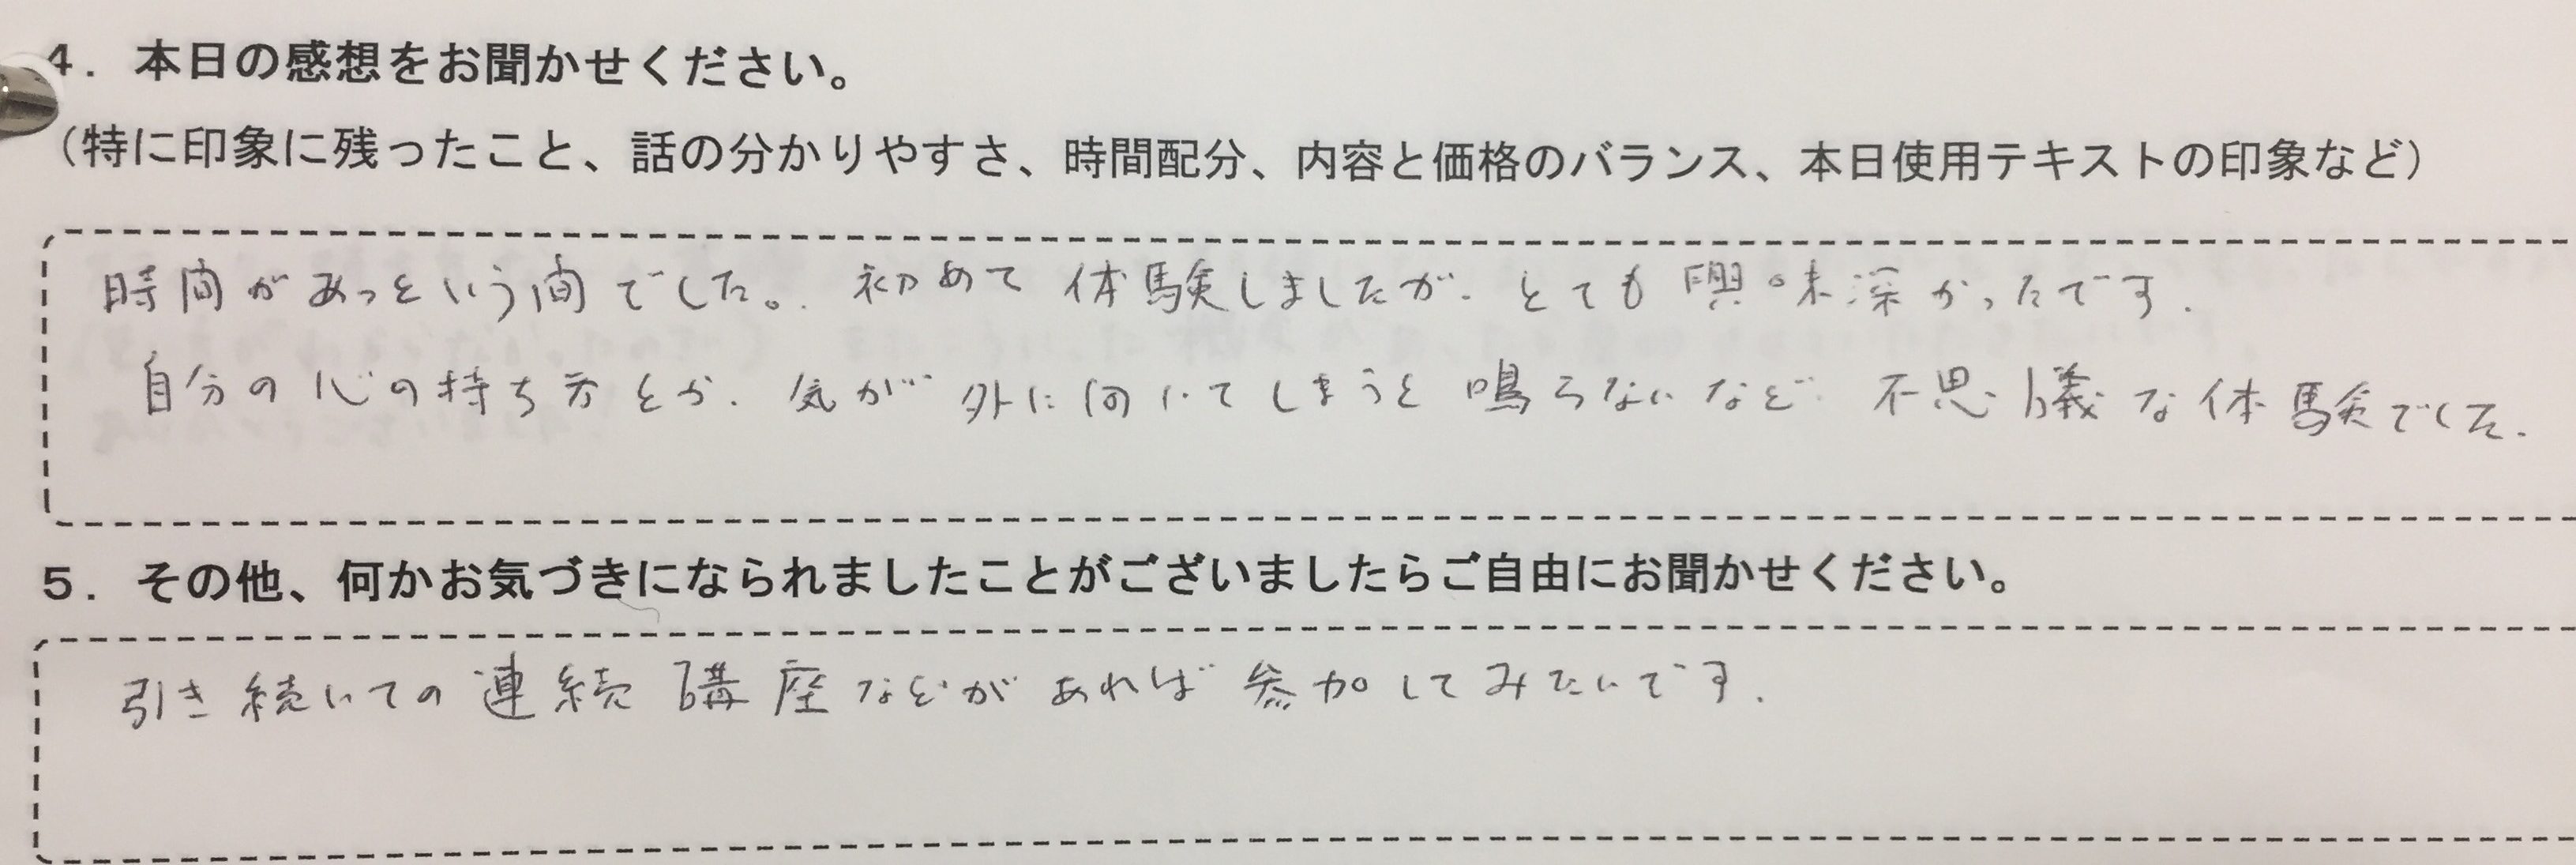 4．本日の感想をお聞かせください。
（特に印象に残ったこと、話の分かりやすさ、時間配分、内容と価格のバランス、本日使用テキストの印象など）
時間があっという間でした。初めて体験しましたが、とても興味深かったです。
自分の心の持ち方とか、気が外に向いてしまうと鳴らないなど不思議な体験でした。
5．その他、何かお気づきになられましたことがございましたらご自由にお聞かせください。
引き続いての連続講座などがあれば参加してみたいです。